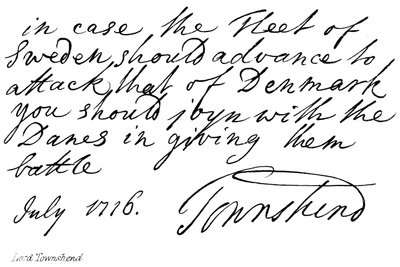 in case the Fleet of
Sweden, should advance to
attack that of Denmark
you should joyn with the
Danes in giving them
battle
July 1716. Townshend
Lord Townshend